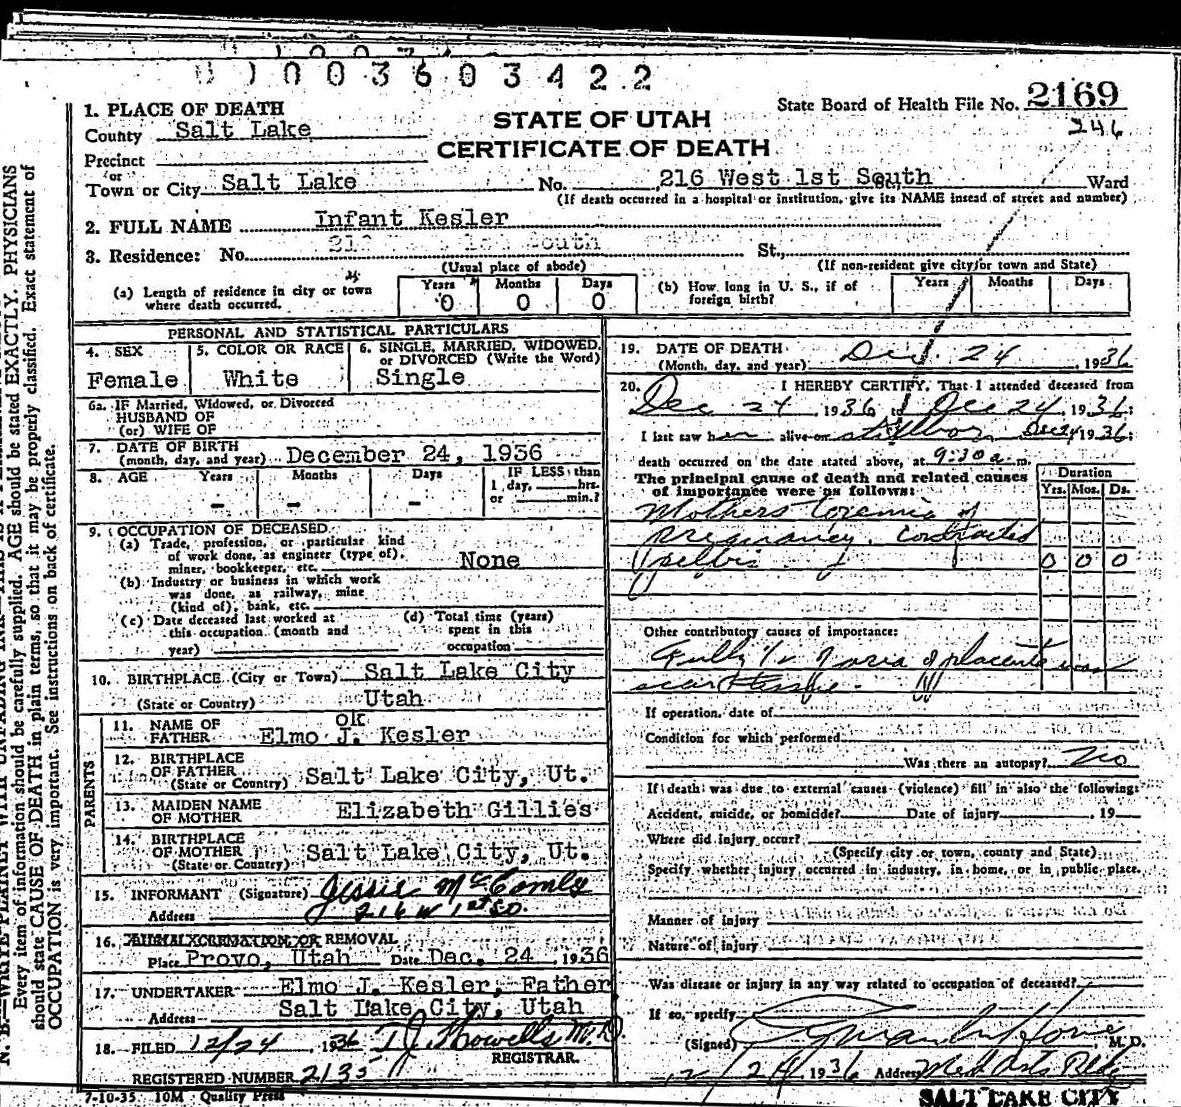 0 1 0 0 3 6 0 3 4 2 2
State Board of Health File No. 2169
246
STATE OF UTAH
CERTIFICATE OF DEATH
1. PLACE OF DEATH
County Salt Lake
Precinct
or
Town or City Salt Lake No. 216 West 1st South St., Ward
(If death occurred in a hospital or institution, give its NAME instead of street and number)
2. FULL NAME Infant Kesler
3. Residence: No. St.,
(Usual place of abode) (If non-resident give city or town and State)
(a) Length of residence in city or town where death occurred. Years 0 Months 0 Days 0
(b) How long in U. S., if of foreign birth? Years Months Days
PERSONAL AND STATISTICAL PARTICULARS
4. SEX Female
5. COLOR OR RACE White
6. SINGLE, MARRIED, WIDOWED, or DIVORCED (Write the Word) Single
6a. IF Married, Widowed, or Divorced
HUSBAND OF
(or) WIFE OF
7. DATE OF BIRTH
(month, day, and year) December 24, 1936
8. AGE Years - Months - Days - IF LESS than 1 day, hrs. or min.?
9. OCCUPATION OF DECEASED
(a) Trade, profession, or particular kind
of work done, as engineer (type of),
miner, bookkeeper, etc. None
(b) Industry or business in which work
was done, as railway, mine
(kind of), bank, etc.
(c) Date deceased last worked at
this occupation (month and
year)
(d) Total time (years)
spent in this
occupation
10. BIRTHPLACE (City or Town) Salt Lake City
(State or Country) Utah
PARENTS
11. NAME OF FATHER Elmo J. Kesler
ok
12. BIRTHPLACE OF FATHER (State or Country) Salt Lake City, Ut.
13. MAIDEN NAME OF MOTHER Elizabeth Gillies
14. BIRTHPLACE OF MOTHER (State or Country) Salt Lake City, Ut.
15. INFORMANT (Signature) Jessie
Address 216 W 1st So.
16. BURIAL, CREMATION, OR REMOVAL
Place Provo, Utah Date Dec. 24, 1936
17. UNDERTAKER Elmo J. Kesler, Father
Address Salt Lake City, Utah
18. FILED 12/24, 1936 T J Howells M.D.
REGISTRAR.
REGISTERED NUMBER 2135
7-10-35 10M Quality Press
19. DATE OF DEATH
(Month, day, and year) Dec. 24, 1936
20. I HEREBY CERTIFY, That I attended deceased from
Dec 24, 1936 to Dec 24, 1936:
I last saw her alive on stillborn Dec 24 1936:
death occurred on the date stated above, at 9:30 a. m.
The principal cause of death and related causes
of importance were as follows:
Duration
Yrs. Mos. Ds.
Mothers toxemia of
pregnancy. Contracted
pelvis 0 0 0
Other contributory causes of importance:
Fully of placenta was
scar tissue.
If operation, date of
Condition for which performed
Was there an autopsy? No
If death was due to external causes (violence) fill in also the following:
Accident, suicide, or homicide? Date of injury , 19
Where did injury occur?
(Specify city or town, county and State)
Specify whether injury occurred in industry, in home, or in public place.
Manner of injury
Nature of injury
Was disease or injury in any way related to occupation of deceased?
If so, specify
(Signed) M. D.
12/24 1936 Address Med Arts Bldg
SALT LAKE CITY
Every item of information should be carefully supplied. AGE should be stated EXACTLY. PHYSICIANS
should state CAUSE OF DEATH in plain terms, so that it may be properly classified. Exact statement of
OCCUPATION is very important. See instructions on back of certificate.